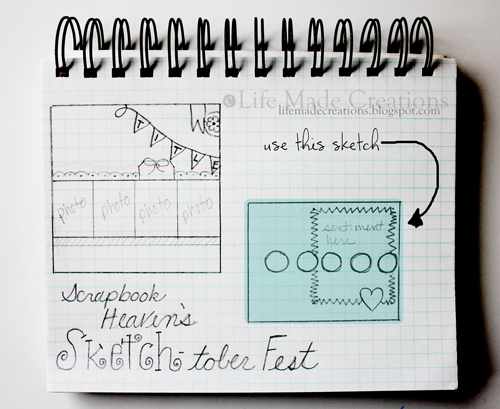 © Life Made Creations
lifemadecreations.blogspot.com
TITLE
use this sketch
photo photo photo photo
sentiment
here
Scrapbook
Heaven's
Sketch-tober Fest